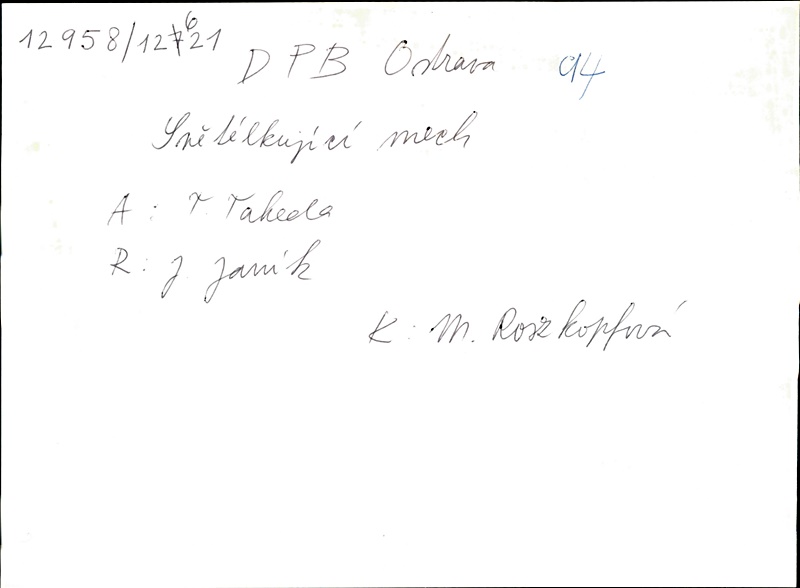 12958/12621
DPB Ostrava 94
Světélkující mech
A: T. Takeda
R: J. Janík
K: M. Roszkopfová